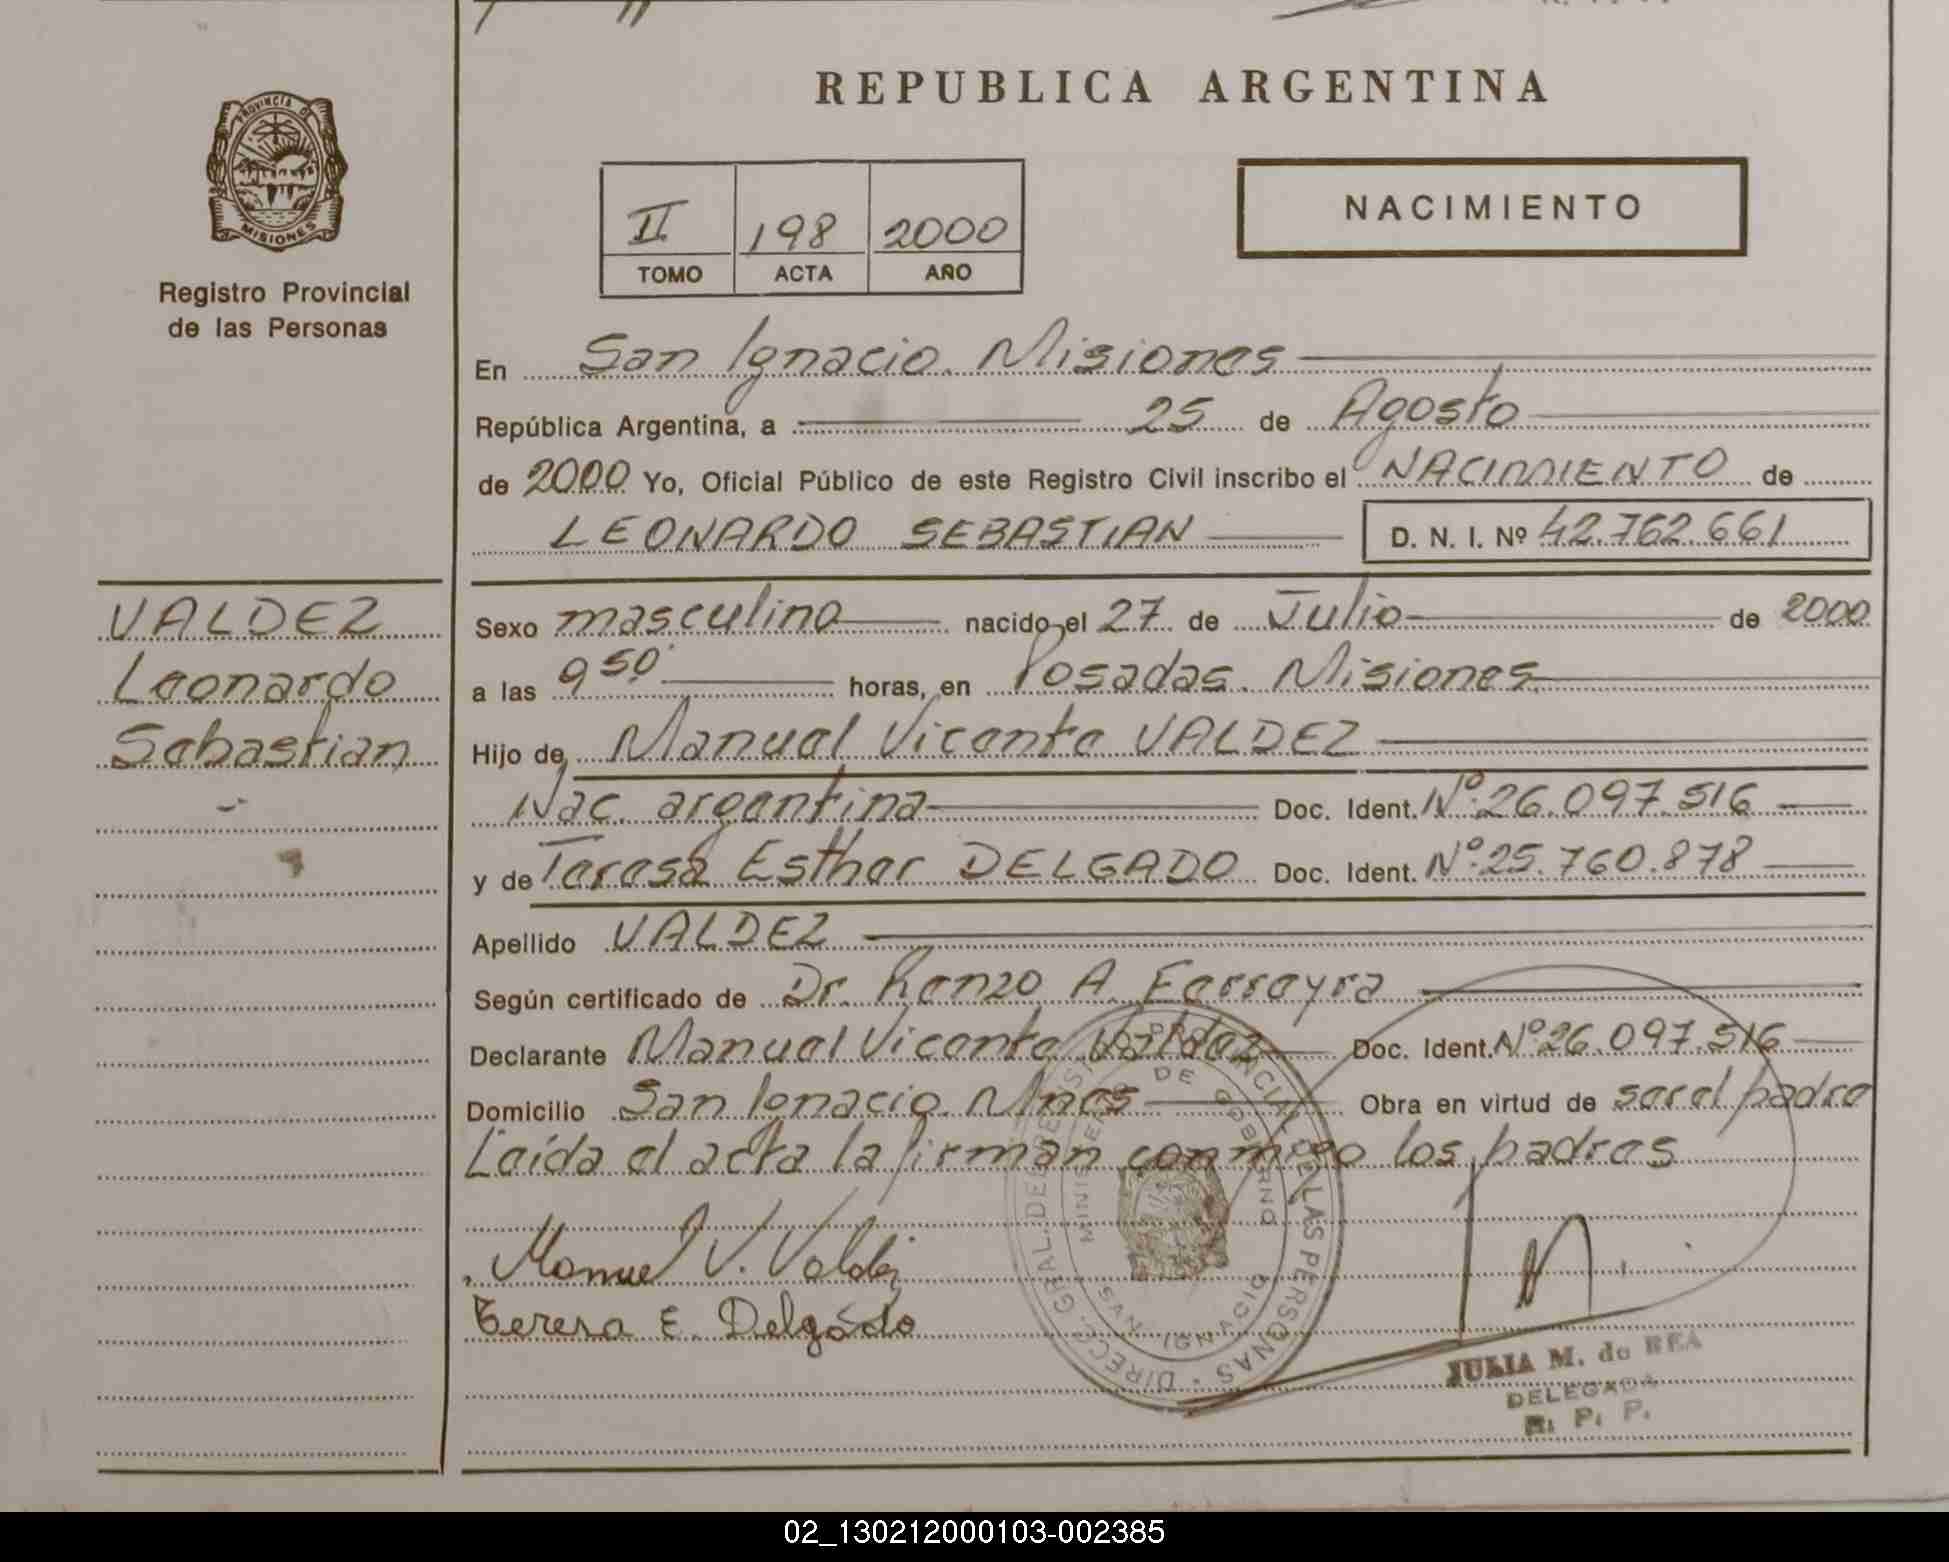 REPUBLICA ARGENTINA
PROVINCIA DE
MISIONES
Registro Provincial
de las Personas
II 198 2000
TOMO ACTA AÑO
NACIMIENTO
En San Ignacio. Misiones
República Argentina, a 25 de Agosto
de 2000 Yo, Oficial Público de este Registro Civil inscribo el NACIMIENTO de
LEONARDO SEBASTIAN D. N. I. Nº 42.762.661
VALDEZ
Leonardo
Sebastian
Sexo masculino nacido el 27 de Julio de 2000
a las 9 50' horas, en Posadas. Misiones
Hijo de Manuel Vicente VALDEZ
Nac. argentina Doc. Ident. Nº 26.097.516
y de Teresa Esther DELGADO Doc. Ident. Nº 25.760.878
Apellido VALDEZ
Según certificado de Dr. Renzo A. Ferreyra
Declarante Manuel Vicente Valdez Doc. Ident. Nº 26.097.516
Domicilio San Ignacio. Mnes Obra en virtud de ser el padre
Leída el acta la firman conmigo los padres
Manuel V. Valdez
Teresa E. Delgado
DIREC. GRAL. DEL REGIST. PROVINCIAL DE LAS PERSONAS
MINISTERIO DE GOBIERNO
SAN IGNACIO
JULIA M. de REA
DELEGADA
R. P. P.
02_130212000103-002385